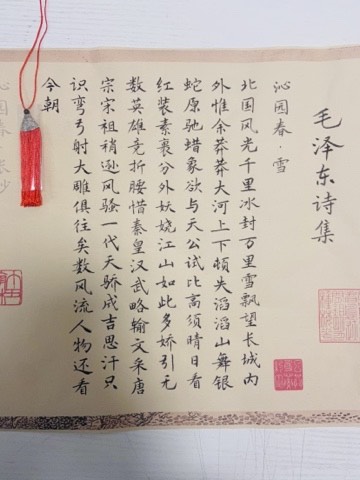 毛泽东诗集
沁园春·雪
北国风光千里冰封万里雪飘望长城内
外惟余莽莽大河上下顿失滔滔山舞银
蛇原驰蜡象欲与天公试比高须晴日看
红装素裹分外妖娆江山如此多娇引无
数英雄竞折腰惜秦皇汉武略输文采唐
宗宋祖稍逊风骚一代天骄成吉思汗只
识弯弓射大雕俱往矣数风流人物还看
今朝
沁园春·长沙